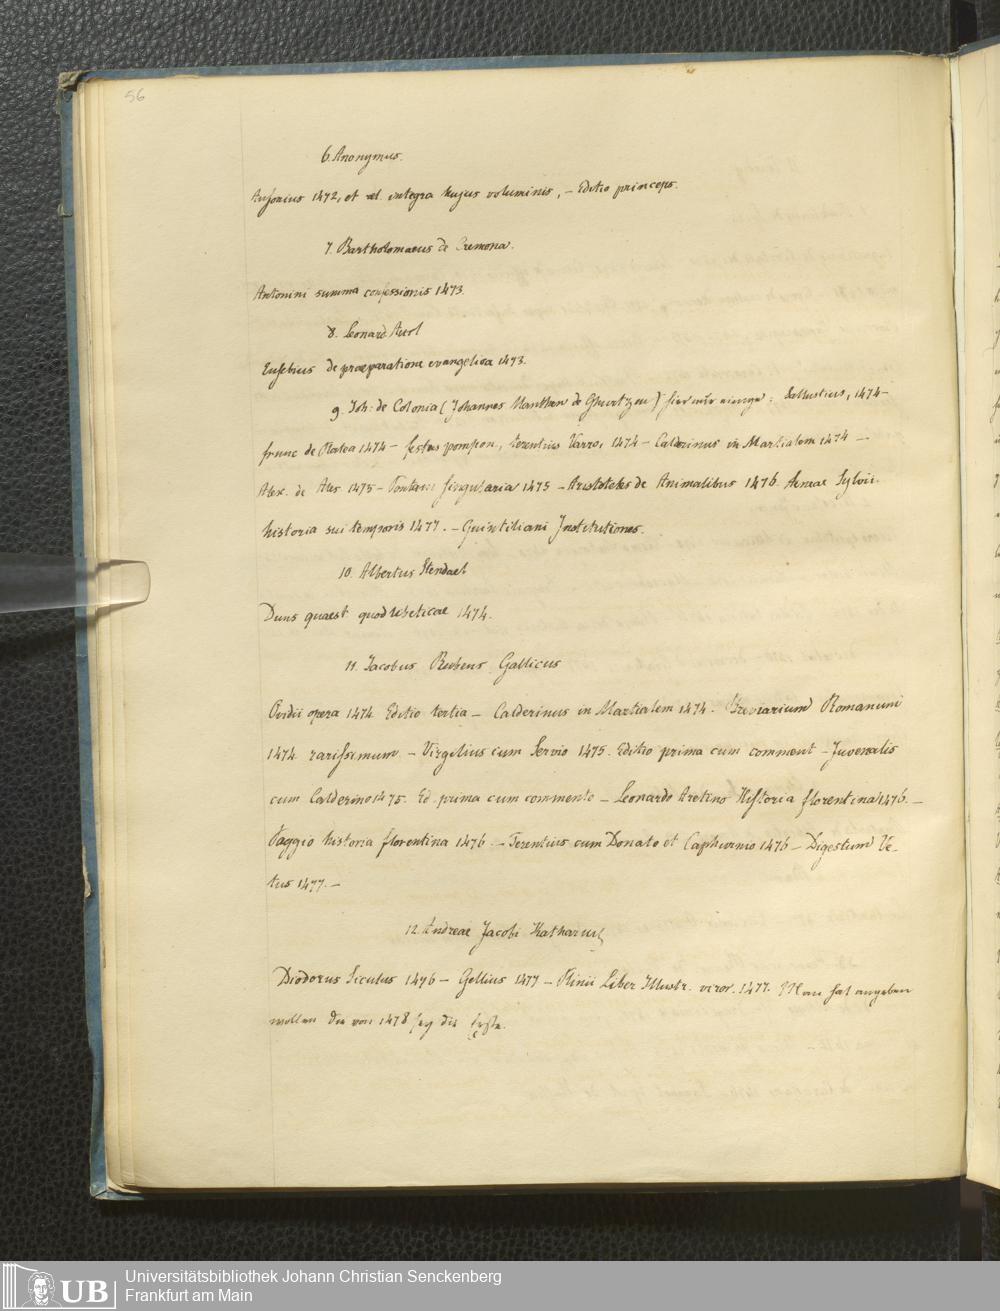 56
6. Anonymus.
Ausonius 1472, et integra hujus voluminis, – Editio princeps.
7. Bartholomaeus de Cremona.
Antonini summa confessionis 1473.
8. Leonard Aurl
Eusebius de praeparatione evangelica 1473.
9. Joh: de Colonia (Johannes Manthen de Gherrtzen) hier nur einige: Sallustius, 1474 –
franc de Platea 1474 – festus pompon., terentius Varro, 1474 – Calderinus in Martialem 1474 –
Alex. de Ales 1475 – Pontani singularia 1475 – Aristoteles de Animalibus 1476. Aeneae Sylvii
historia sui temporis 1477. – Quintiliani Institutiones.
10. Albertus Stendael
Duns quaest quodlibeticae 1474.
11. Jacobus Rubeus, Gallicus
Ovidii opera 1474. Editio tertia – Calderinus in Martialem 1474. Breviarium Romanum
1474 rarissimum – Virgilius cum Servio 1475. Editio prima cum comment – Juvenalis
cum Calderino 1475. Ed. prima cum commento – Leonardo Aretino Historia florentina 1476. –
Poggio historia florentina 1476. – Terentius cum Donato et Caphurnio 1476 – Digestum Ve-
tus 1477. –
12. Andreae Jacobi Katharus
Diodorus Siculus 1476 – Gellius 1477 – Plinii Liber Illustr. viror. 1477. Man hat angeben
wollen die von 1478 sey die erste.
UB
Universitätsbibliothek Johann Christian Senckenberg
Frankfurt am Main